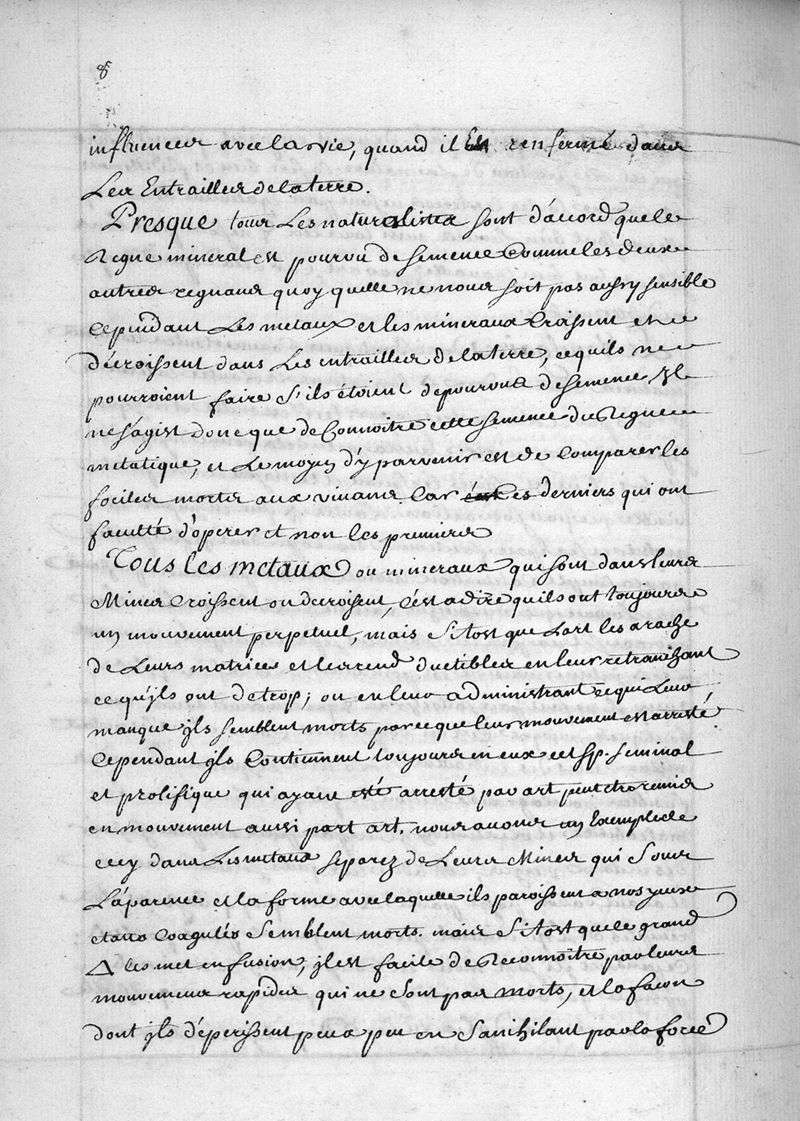 8
influences avec la vie, quand il Est renfermé dans
Les Entrailles de la terre.
Presque tous Les naturalistes sont d'acord que le
Regne mineral est pourvû de semence Comme les deux
autres regnans quoy quelle ne nous soit pas aussy sensible
Cependant Les metaux et les mineraux Croissent et
décroissent dans Les entrailles de la terre, ce quils ne
pourroient faire S'ils étoient dépourvus de semence, Il
ne s'agist donc que de Connoitre cette semence du Regne
metalique, et Le moyen d'y parvenir est de Comparer les
fociles morts aux vivans Car ces derniers qui ont
faculté d'operer et non les premiers
Tous les metaux ou mineraux qui sont dans leurs
Mines Croissent ou decroisent, C'est a dire quils ont toujours
un mouvement perpetuel, mais Sitost que Lart les arache
de Leurs matrices et les rend ductibles en leur retranchant
ce qu'ils ont de trop; ou en leur administrant ce qui Leur
manque jls semblent morts parce que leur mouvement est arresté
Cependant jls Contiennent toujours en eux cet sp. seminal
et prolifique qui ayant esté arresté par art peut etre remis
en mouvement aussi part art, nous avons un Exemple de
cecy dans Les metaux séparez de Leurs Mines qui Sous
L'áparence et la forme avec laquelle ils paroissent a nos yeux
etans Coagulés Semblent morts. mais Sitost que le grand
△ les met en fusion, jl est facile de Reconnoitre par leurs
mouvemens rapides qui ne Sont pas Morts, et la facon
dont jls déperissent peu a peu en Sanihilant par la force